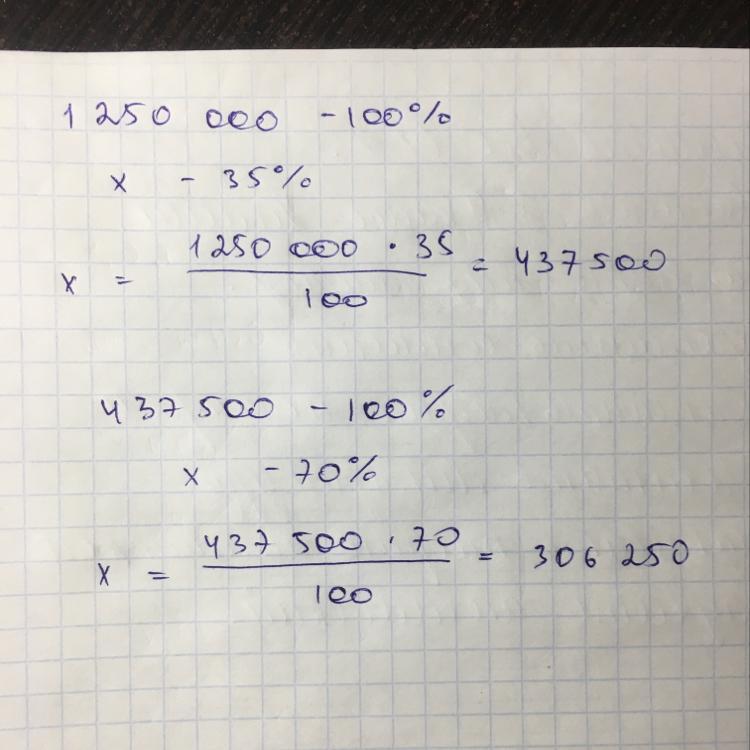 1 250 000 - 100%
x - 35%
x = 1 250 000 · 35 / 100 = 437 500
437 500 - 100%
x - 70%
x = 437 500 · 70 / 100 = 306 250